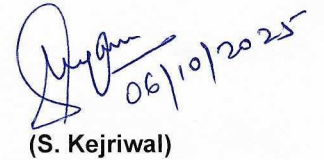 06/10/2025
(S. Kejriwal)